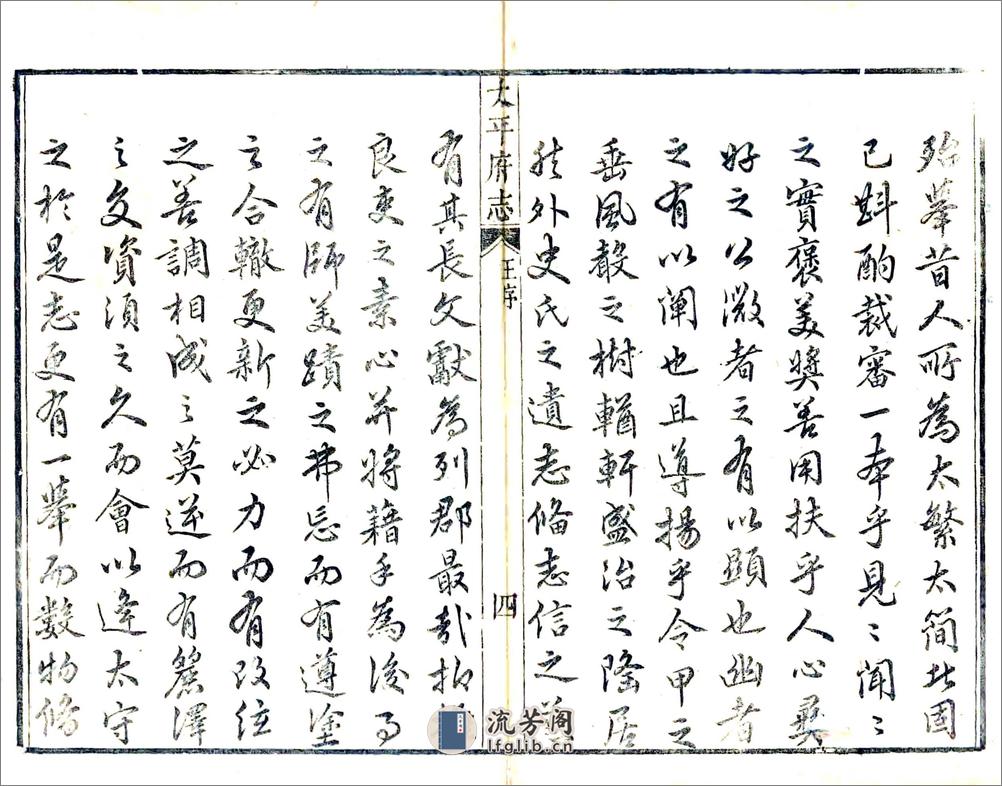 殆舉昔人所為太繁太簡比固
已斟酌裁審一本乎見〻聞〻
之實褒美獎善用扶乎人心彝
好之公微者之有以顯也幽者
之有以闡也且導揚乎令甲之
垂風聲之樹輶軒盛治之隆居
然外史氏之遺志俻志信之
太平府志
王序
四
有其長文獻為列郡最哉抑
良吏之素心并將藉手為後
之有師美蹟之弗忘而有遵塗
之合轍更新之必力而有改絃
之善調相成之莫逆而有麗澤
之交資須之久而會以逢太守
之於是志更有一舉而數物脩
流芳阁
lfglib.cn